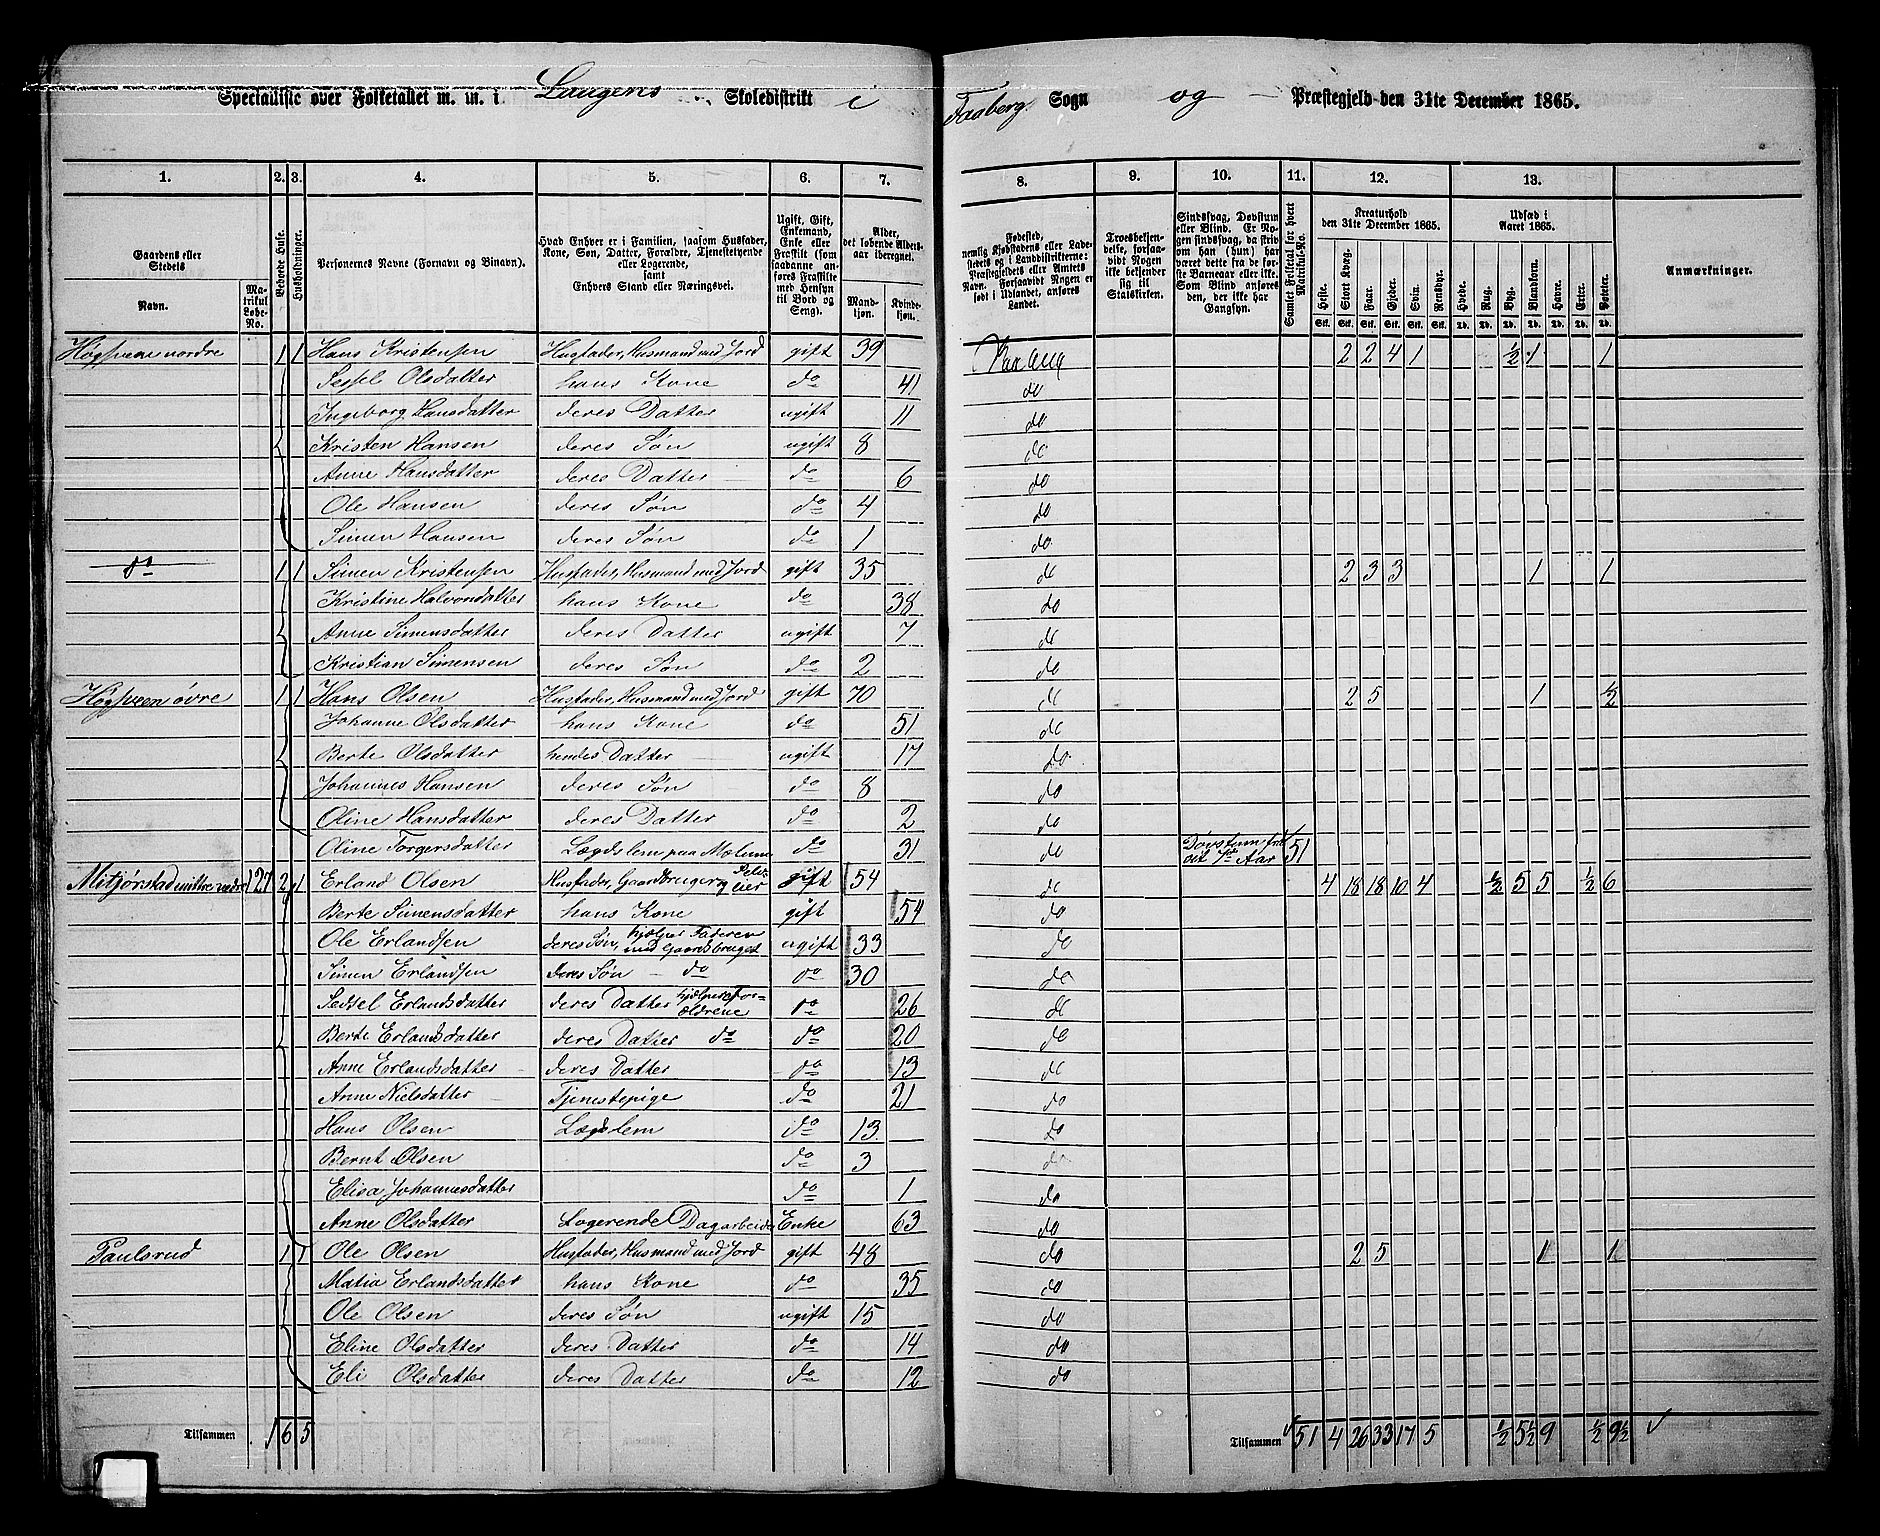 Specialliste over Folketallet m. m. i Laugens Skoledistrikt i Faaberg Sogn og Præstegjeld den 31te December 1865.
1. 2. 3. 4. 5. 6. 7. 8. 9. 10. 11. 12. 13.
Gaardens eller Stedets
Navn. Matrikul Løbe-No.
Beboede Huse.
Husholdninger.
Personernes Navne (Fornavn og Binavn).
Hvad Enhver er i Familien, saasom Husfader, Kone, Søn, Datter, Forældre, Tjenestetyende eller Logerende,
samt
Enhvers Stand eller Næringsvei.
Ugift, Gift, Enkemand, Enke eller Fraskilt (som saadanne anføres Fraskilte med Hensyn til Bord og Seng).
Alder, det løbende Aldersaar iberegnet.
Mandkjøn. Kvindekjøn.
Fødested, nemlig Kjøbstadens eller Ladestedets og i Landdistrikterne: Præstegjeldets eller Amtets Navn. Forsaavidt Nogen er født i Udlandet, anføres Landet.
Troesbekjendelse, forsaavidt Nogen ikke bekjender sig til Statskirken.
Sindssvag, Døvstum eller Blind. Er Nogen sindssvag, da skrives om han (hun) har været dette fra de første Barneaar eller ikke. Som Blind anføres den, der ikke har Gangsyn.
Samlet Folketal for hvert Matrikul-No.
Kreaturhold den 31te December 1865.
Heste. Stort Kvæg. Faar. Gjeder. Svin. Rensdyr.
Udsæd i Aaret 1865.
Hvede. Rug. Byg. Blandkorn. Havre. Erter. Poteter.
Anmærkninger.
Høgsveen nordre 1 1 Hans Kristensen Husfader, Husmand med Jord gift 39 Faaberg 2 2 4 1 ½ 1 1
Sessel Olsdatter hans Kone do 41 do
Ingeborg Hansdatter deres Datter ugift 11 do
Kristen Hansen deres Søn ugift 8 do
Anne Hansdatter deres Datter do 6 do
Ole Hansen deres Søn do 4 do
Simen Hansen deres Søn do 1 do
do 1 1 Simen Kristensen Husfader, Husmand med Jord gift 35 do 2 3 3 1 1
Kristine Halvorsdatter hans Kone do 38 do
Anne Simensdatter deres Datter ugift 7 do
Kristian Simensen deres Søn do 2 do
Høgsveen øvre 1 1 Hans Olsen Husfader, Husmand med Jord gift 70 do 2 5 1 ½
Johanne Olsdatter hans Kone do 51 do
Berte Olsdatter hendes Datter ugift 17 do
Johannes Hansen deres Søn do 8 do
Oline Hansdatter deres Datter do 2 do
Oline Torgersdatter Lægdslem paa Mælum do 31 do Døvstum fra det 7de Aar 51
Mitjørstad mittre nedre 127 2 1 Erland Olsen Husfader, Gaardbruger og Selveier gift 54 do 4 18 18 10 4 ½ 5 5 ½ 6
Berte Simensdatter hans Kone gift 54 do
Ole Erlandsen deres Søn, hjælper Faderen med Gaardsbruget ugift 33 do
Simen Erlandsen deres Søn do do 30 do
Sessel Erlandsdatter deres Datter hjælper Forældrene do 26 do
Berte Erlandsdatter deres Datter do do 20 do
Anne Erlandsdatter deres Datter do 13 do
Anne Nielsdatter Tjenestepige do 21 do
Hans Olsen Lægdslem do 13 do
Bernt Olsen do 3 do
Elisa Johannesdatter do 1 do
Anne Olsdatter Logerende Dagarbeider Enke 63 do
Paulsrud 1 1 Ole Olsen Husfader, Husmand med Jord gift 48 do 2 5 1 1
Matia Erlandsdatter hans Kone do 35 do
Ole Olsen deres Søn ugift 15 do
Eline Olsdatter deres Datter do 14 do
Eli Olsdatter deres Datter do 12 do
Tilsammen 1 6 5 Tilsammen 51 4 26 33 17 5 ½ 5½ 9 ½ 9½